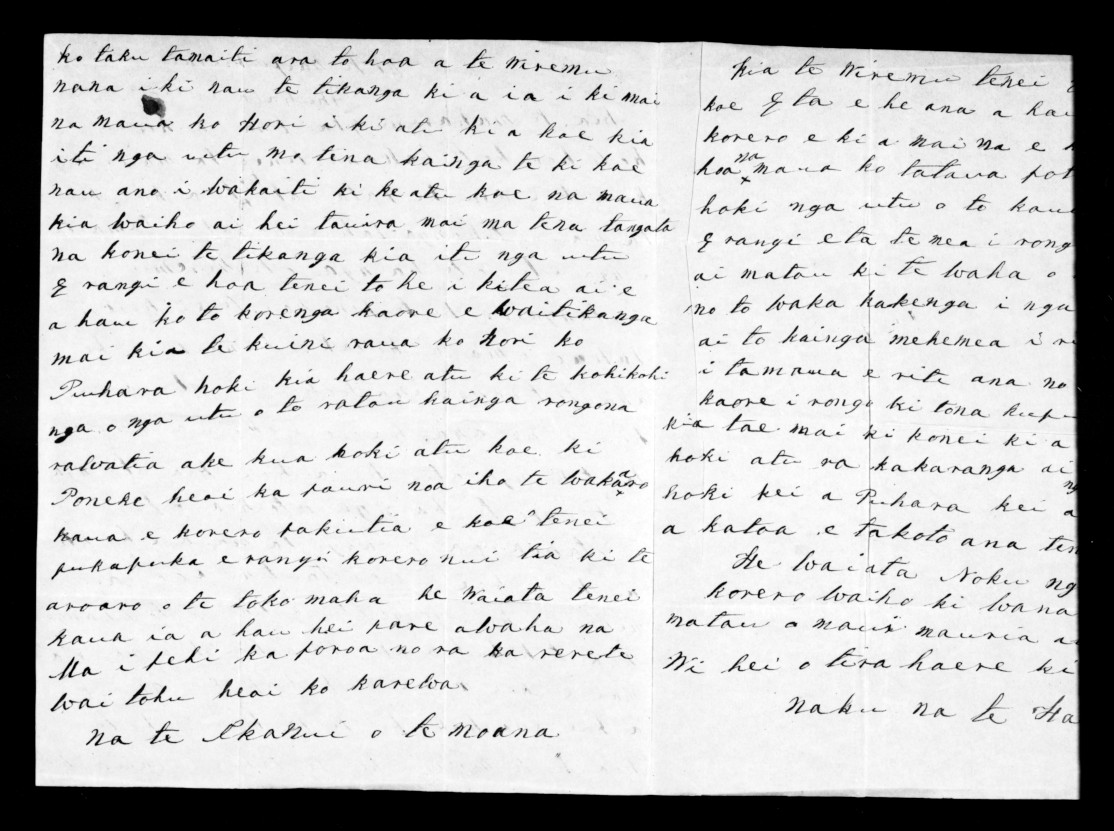 ko taku tamaiti ara to hoa a te Wiremu
nana i ki nau te tikanga ki a ia i ki mai
na maua ko Hori i ki atu kia koe kia
iti nga utu mo tena kainga te ki koe
nau ano i wakaiti ki ke atu koe na maua
kia waiho ai hei tauira mai ma tena tangata
na konei te tikanga kia iti nga utu
E rangi e hoa tenei to he i kitea ai e
a hau ko to korenga kaore e waitikanga
mai kia te kuini raua ko Hori ko
Puhara hoki kia haere atu ki te kohikohi
nga o nga utu o to ratou kainga rongona
rawatia ake kua hoki atu koe ki
Poneke heoi ka pouri noa iho te wakaaro
kaua e korero pakiutia e koe tenei
pukapuka e rangi korero nui tia ki te
aroaro o te tokomaha he Waiata tenei
kaua ia a hau hei pare awaha na
Ma i pehi ka poroa no ra ka rerete
wai tohu heoi ko karewa
Na te Ika Nui o te moana
Kia te Wiremu tenei
koe E ta e he ana a hau
korero e ki a mai na e
hoa na maua ko tatava
hoki nga utu o to
E rangi e ta te mea i rong
ai matau ki te waha o
no to waka kakenga i nga
ai to kainga mehemea i
i ta maua e rite ana no
kaore i rongo ki tona
kia tae mai ki konei ki a
hoki atu ra kakaranga ai
hoki kei a Puhara kei a
a katoa e takoto ana
He Waiata Noku
korero waiho ki wana
matau o maui mauria
Wi hei o tira haere ki
Naku na te Ha